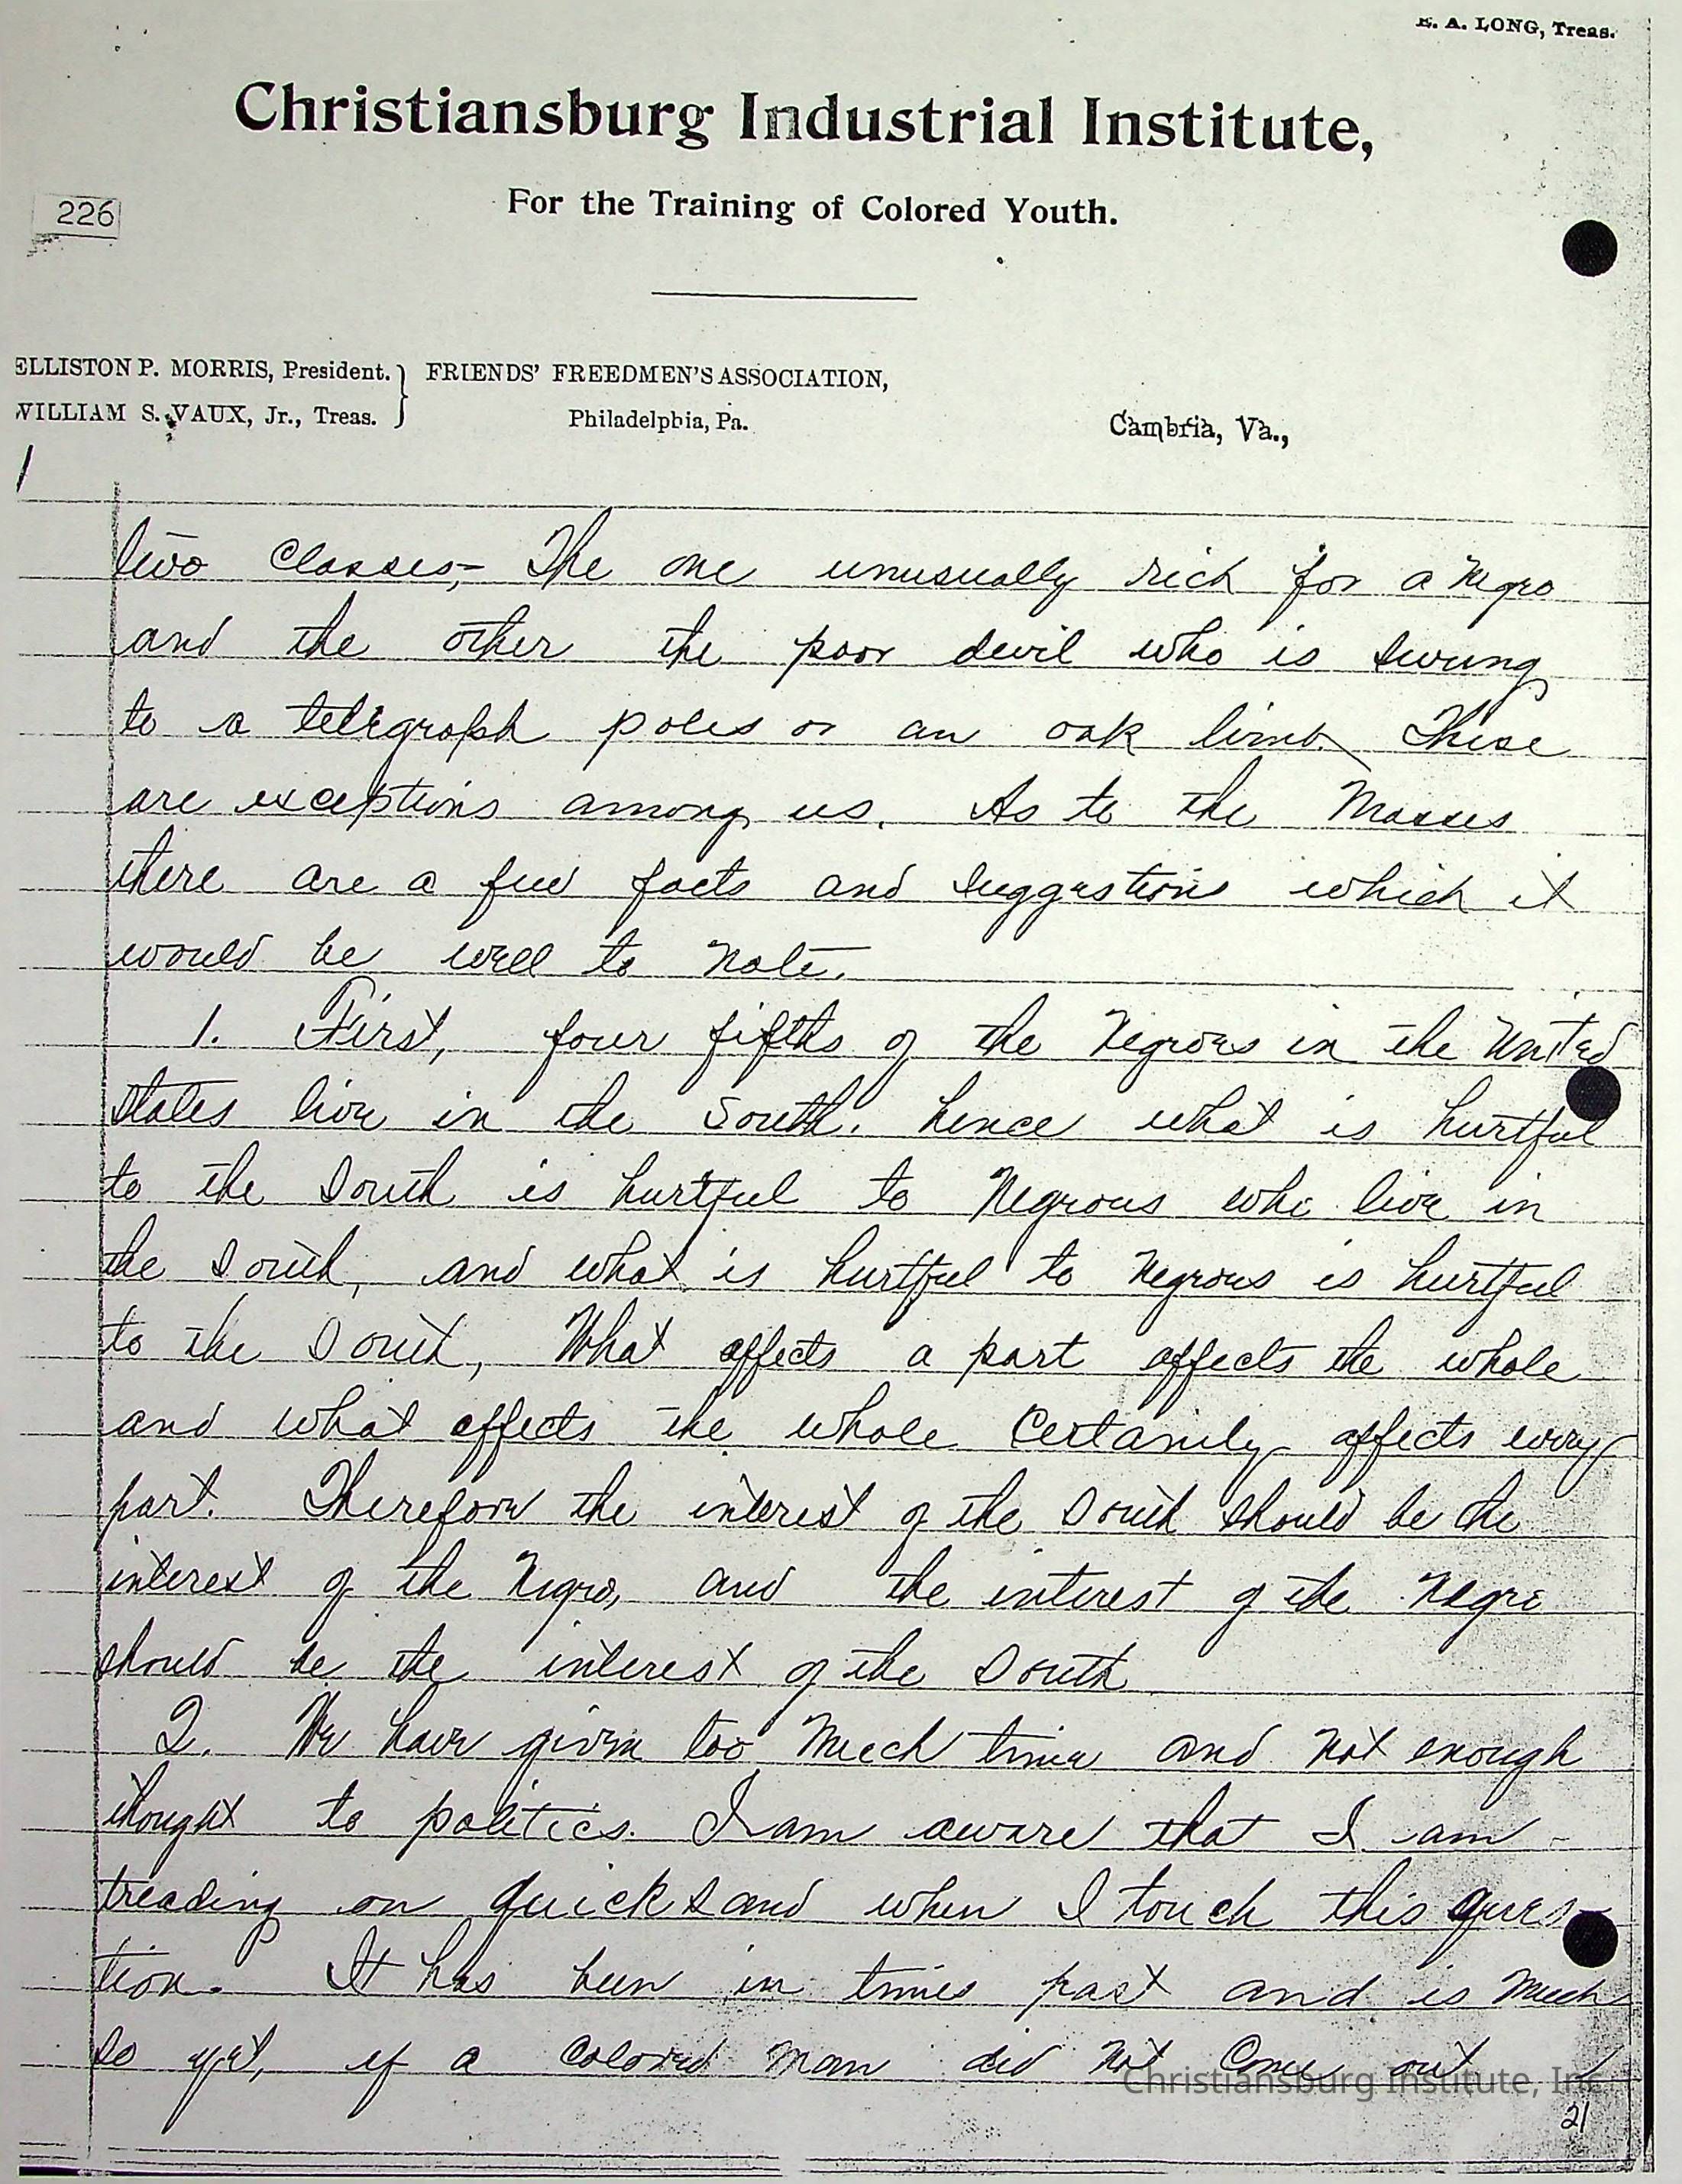 E. A. LONG, Treas.
Christiansburg Industrial Institute,
226
For the Training of Colored Youth.
ELLISTON P. MORRIS, President. } FRIENDS' FREEDMEN'S ASSOCIATION,
WILLIAM S. VAUX, Jr., Treas. Philadelphia, Pa.
Cambria, Va.,
two Classes,- The one unusually rich for a Negro
and the other the poor devil who is swung
to a telegraph poles or an oak limb. These
are exceptions among us. As to the Masses
there are a few facts and suggestions which it
would be well to note.
1. First, four fifths of the Negroes in the United
States live in the South. hence what is hurtful
to the South is hurtful to Negroes who live in
the South, and what is hurtful to Negroes is hurtful
to the South, What affects a part affects the whole
and what affects the whole Certainly affects every
part. Therefore the interest of the South should be the
interest of the Negro, and the interest of the Negro
should be the interest of the South
2. We have given too much time and not enough
thought to politics. I am aware that I am
treading on quicksand when I touch this ques-
tion. It has been in times past and is much
so yet, if a colored man did not Come out
Christiansburg Institute, Inc.
21